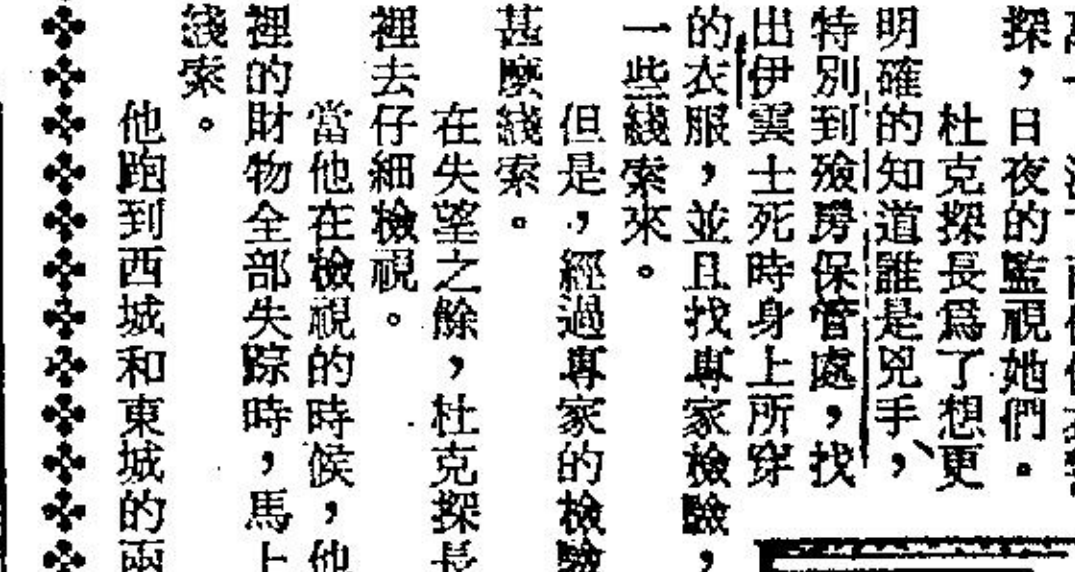 探，日夜的監視她們。
杜克探長爲了想更
明確的知道誰是兇手，
特別到殮房保管處，找
出伊雲士死時身上所穿
的衣服，並且找專家檢驗，
一些綫索來。
但是，經過專家的檢驗
甚麼綫索。
在失望之餘，杜克探長
裡去仔細檢視。
當他在檢視的時候，他
裡的財物全部失踪時，馬上
綫索。
他跑到西城和東城的兩